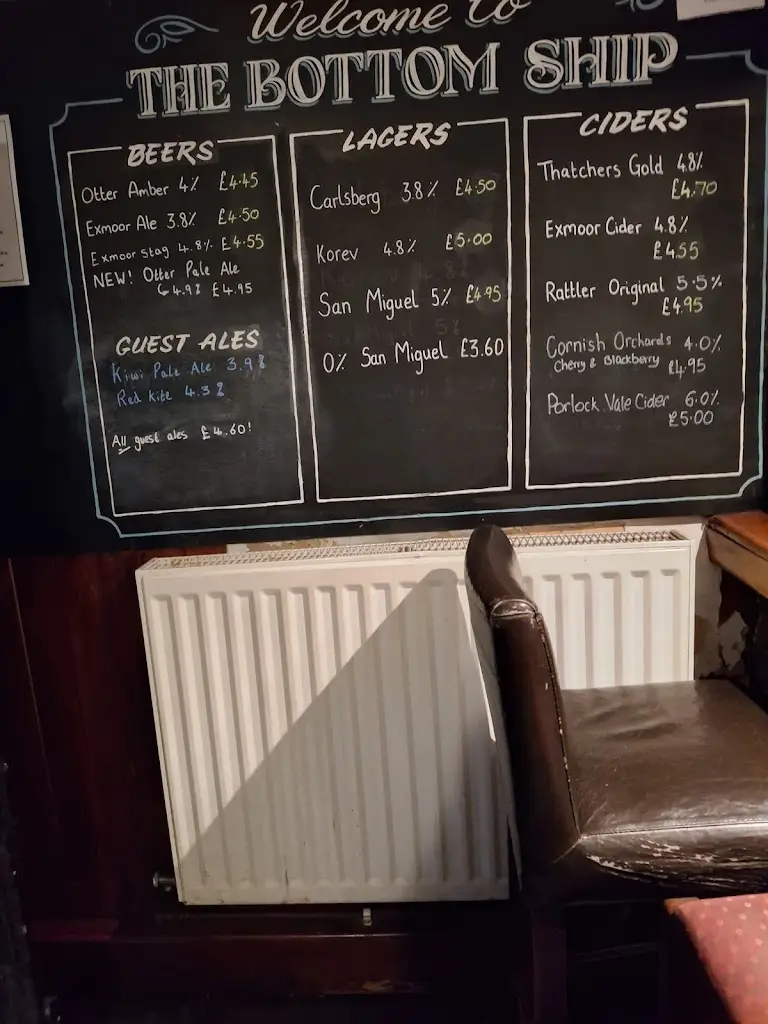 Welcome to
THE BOTTOM SHIP
BEERS
Otter Amber 4% £4.45
Exmoor Ale 3.8% £4.50
Exmoor Stag 4.8% £4.55
NEW! Otter Pale Ale
4.9% £4.95
GUEST ALES
Kiwi Pale Ale 3.9%
Red Kite 4.3%
All guest ales £4.60!
LAGERS
Carlsberg 3.8% £4.50
Korev 4.8% £5.00
San Miguel 5% £4.95
0% San Miguel £3.60
CIDERS
Thatchers Gold 4.8%
£4.70
Exmoor Cider 4.8%
£4.55
Rattler Original 5.5%
£4.95
Cornish Orchards 4.0%
Cherry & Blackberry £4.95
Porlock Vale Cider 6.0%
£5.00